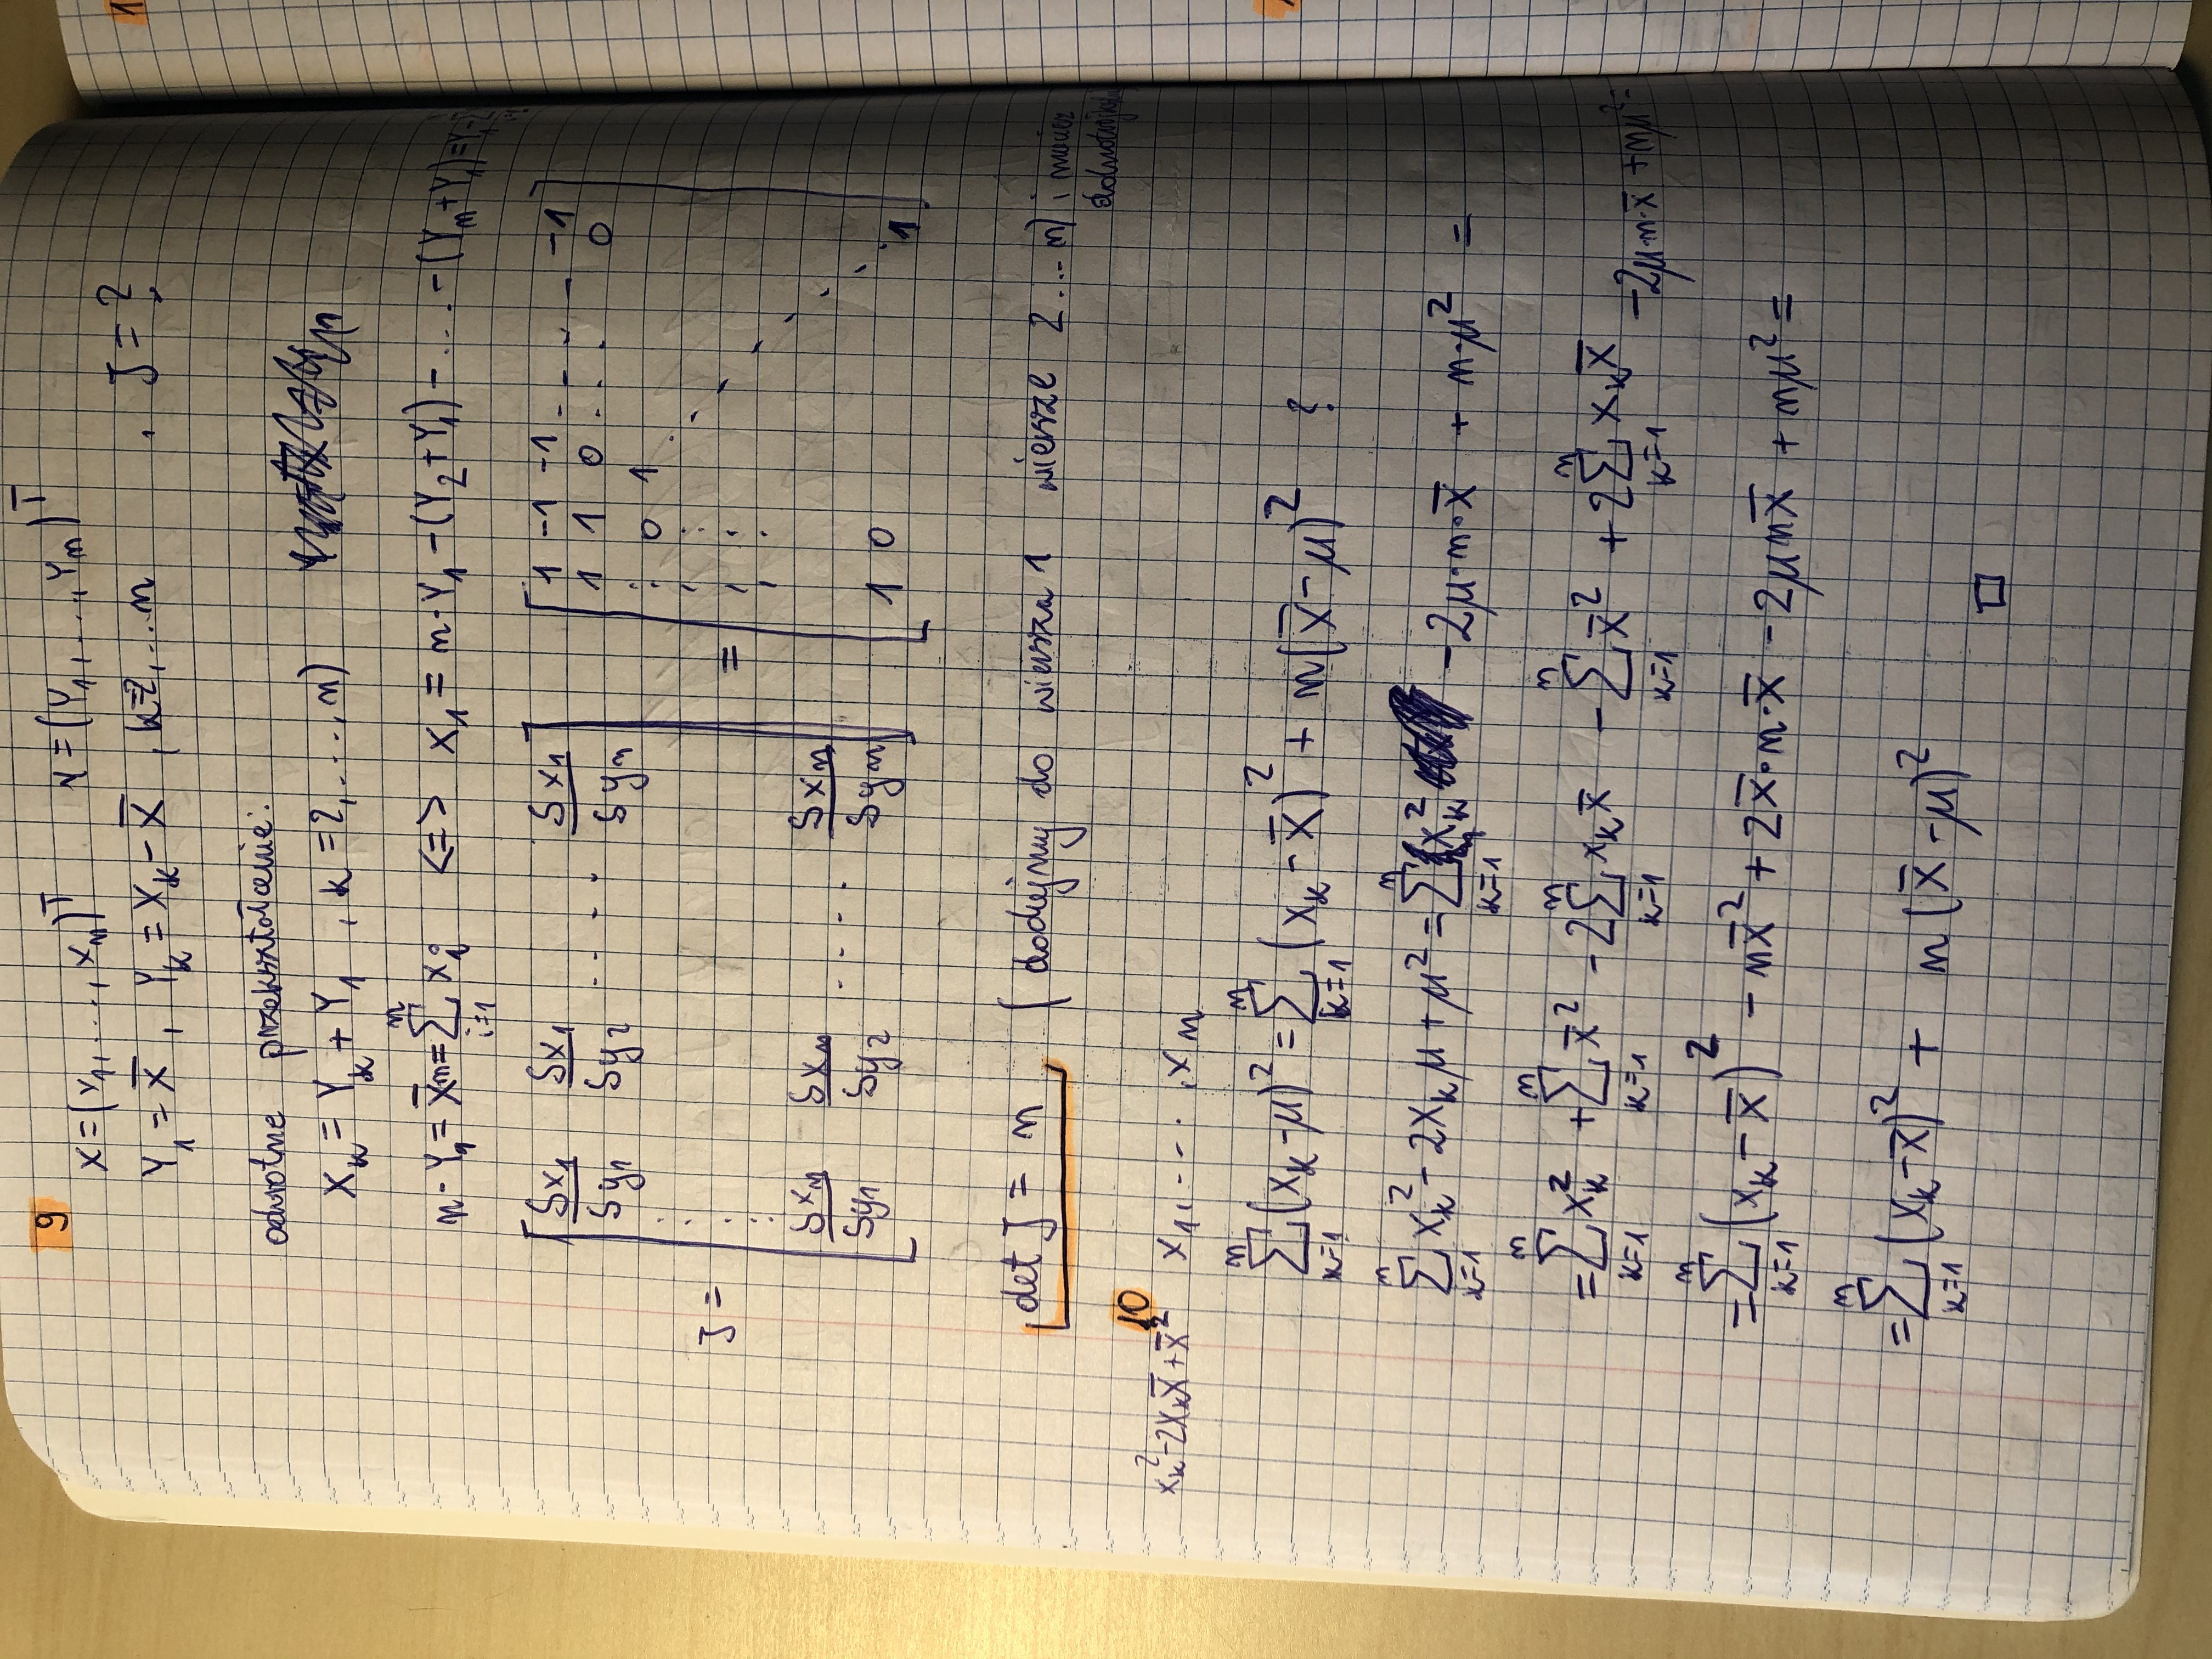 9
X = (X₁, ..., Xₙ)ᵀ Y = (Y₁, ..., Yₙ)ᵀ
Y₁ = X̄ , Yₖ = Xₖ - X̄ , k=2, ... n , J = ?
odwrotne przekształcenie:
Xₖ = Yₖ + Y₁ , k = 2, ..., n)
n · Y₁ = X̄n = ∑ᵢ₌₁ⁿ Xᵢ <=> X₁ = n·Y₁ - (Y₂+Y₁) - ... - (Yₙ+Y₁) = Y₁ - ∑
J = [ δx₁/δy₁ δx₁/δy₂ .... δx₁/δyₙ ; ⋮ ; δxₙ/δy₁ δxₙ/δy₂ .... δxₙ/δyₙ ] = [ 1 -1 -1 ..... -1 ; 1 1 0 .... 0 ; ⋮ 0 1 ⋱ ; 1 0 ⋱ 1 ]
det J = n ( dodajmy do wiersza 1 wiersze 2 ... n) i macierz
10
xₖ² - 2xₖx̄ + x̄² x₁, ..... , xₙ
∑ₖ₌₁ⁿ (xₖ - μ)² = ∑ₖ₌₁ⁿ (xₖ - x̄)² + n(x̄ - μ)² ?
∑ₖ₌₁ⁿ xₖ² - 2xₖμ + μ² = ∑ₖ₌₁ⁿ xₖ² - 2μ·n·x̄ + n·μ² =
= ∑ₖ₌₁ⁿ xₖ² + ∑ₖ₌₁ⁿ x̄² - 2∑ₖ₌₁ⁿ xₖx̄ - ∑ₖ₌₁ⁿ x̄² + 2∑ₖ₌₁ⁿ xₖx̄ - 2μ·n·x̄ + nμ² =
= ∑ₖ₌₁ⁿ (xₖ - x̄)² - nx̄² + 2x̄·n·x̄ - 2μnx̄ + nμ² =
= ∑ₖ₌₁ⁿ (xₖ - x̄)² + n(x̄ - μ)²
□
1